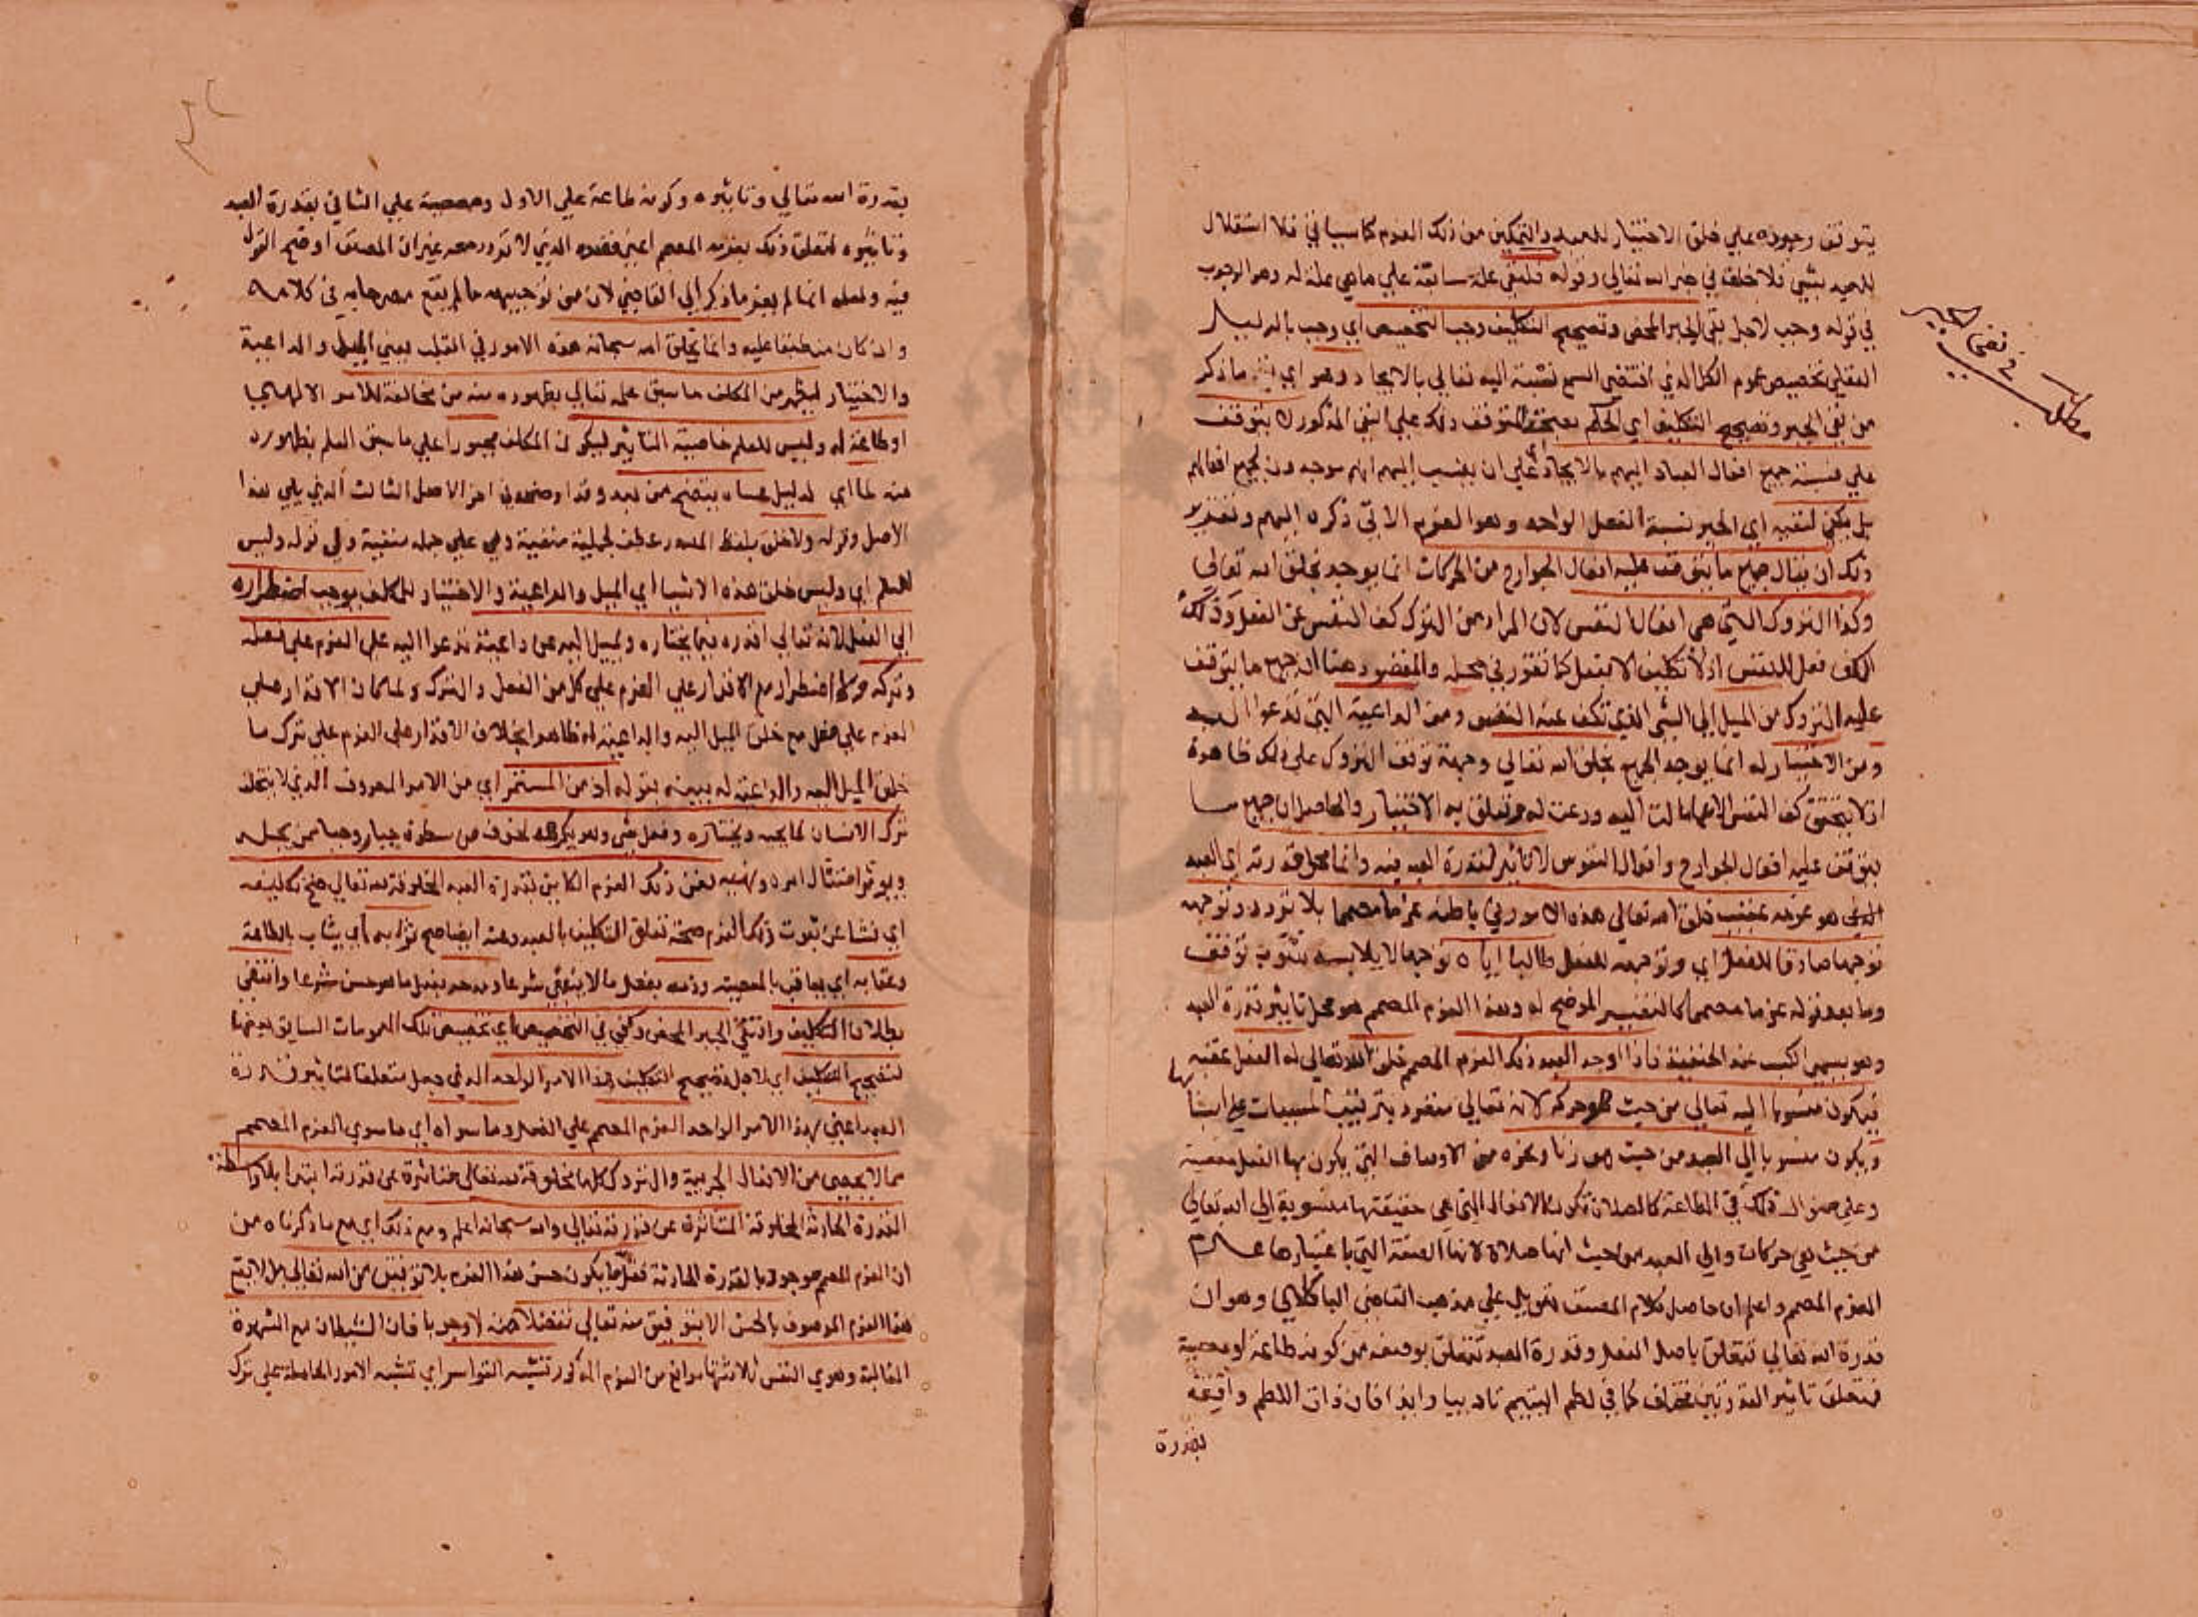 يتوقف وجوده علي خلق الاختيار للعبد والتمكين من ذلك العزم كما سياتي فلا استقلال
للعبد بشي فلا خلق في خبر الله تعالي وقوله فلنفي علة سابقة علي ما هي علة له وهو الوجوب
في قوله وجب لاجل نفي الجبر المحض وتصحيح التكليف وجب التخصيص اي وجب بالدليل
العقلي تخصيص عموم الكل الذي اقتضي السمع نسبته اليه تعالي بالايجاد وهو اي ما ذكر
من نفي الجبر وتصحيح التكليف اي الحكم بصحة لتوقف ذلك علي نفي المذكور لا يتوقف
علي نسبة جميع افعال العباد اليهم بالايجاد اي علي ان ينسب اليهم انهم موجدون لجميع افعالهم
بل يكفي لنفيه اي الجبر نسبة الفعل الواحد وهو العزم الاتي ذكره اليهم وتقرير
ذلك ان يقال جميع ما يتوقف عليه افعال الجوارح من الحركات انما يوجد بخلق الله تعالي
وكذا التروك التي هي افعال النفس لان المراد من الترك كف النفس عن الفعل وذلك
الكف فعل للنفس اذ لا تكليف الا بفعل كما تقرر في محله والمقصود هنا ان جميع ما يتوقف
عليه التروك من الميل الي الشي الذي تكف عنه النفس ومن الداعية التي تدعوا اليه
ومن الاختيار له انما يوجد الجميع بخلق الله تعالي وجهة توقف التروك علي ذلك ظاهرة
اذ لا يتحقق كف النفس الا عما مالت اليه ودعت له وتعلق به الاختيار والحاصل ان جميع ما
يتوقف عليه افعال الجوارح وافعال النفوس لا تاثير لقدرة العبد فيه وانما محل قدرته اي العبد
الذي هو عزمه عقب خلق الله تعالي هذه الامور في باطنه عزما مصمما بلا تردد وتوجهه
توجها صادقا للفعل اي وتوجهه للفعل طالبا اياه توجها لا يلابسه شوب توقف
وما بعد قوله عزما مصمما كالتفسير الموضح له وهذا العزم المصمم هو محل تاثير قدرة العبد
وهو يسمي الكسب عند الحنفية فاذا اوجد العبد ذلك العزم المصمم خلق الله تعالي له الفعل عقبه
فيكون منسوبا اليه تعالي من حيث هو حركة لانه تعالي منفرد بترتيب المسببات علي اسبابها
ويكون منسوبا الي العبد من حيث هو زنا ونحوه من الاوصاف التي يكون بها الفعل معصية
وعلي منوال ذلك في الطاعة كالصلاة تكون الافعال التي هي حقيقتها منسوبة الي الله تعالي
من حيث هي حركات والي العبد من حيث انها صلاة لانها الصفة التي باعتبارها
العزم المصمم واعلم ان حاصل كلام المصنف تعويل علي مذهب القاضي الباقلاني وهو ان
قدرة الله تعالي تتعلق باصل الفعل وقدرة العبد تتعلق بوصفه من كونه طاعة او معصية
فتعلق تاثير القدرتين مختلف كما في لطم اليتيم تاديبا وايذا فان ذات اللطم واقعة
بقدرة
مطلب
في نفي الجبر
بقدرة الله تعالي وتاثيره وكونه طاعة علي الاول ومعصية علي الثاني بقدرة العبد
وتاثيره لتعلق ذلك بعزمه المصمم اعني قصده الذي لا تردد معه غير ان المصنف اوضح القول
فيه ولعله انما لم يعز ما ذكر الي القاضي لان من توجيهه ما لم يقع مصرحا به في كلامه
وان كان منطبقا عليه وانما يخلق الله سبحانه هذه الامور في القلب يعني الميل والداعية
والاختيار ليظهر من المكلف ما سبق علمه تعالي بظهوره منه من مخالفة للامر الالهي
او طاعة له وليس للعلم خاصية التاثير ليكون المكلف مجبورا علي ما سبق العلم بظهوره
منه لما اي لدليل عساه يتضح من بعد وقد اوضحه في اخر الاصل الثالث الذي يلي هذا
الاصل وقوله ولا خلق بلفظ المصدر عطف لجملة منفية وهي علي جملة منفية وهي قوله وليس
للعلم اي وليس خلق هذه الاشيا اي الميل والداعية والاختيار للمكلف يوجب اضطراره
الي الفعل لانه تعالي اقدره فيما يختاره ويميل اليه عن داعية تدعوا اليه علي العزم علي فعله
وتركه ولا اضطرار مع الاقدار علي العزم علي كل من الفعل والترك ولما كان الاقدار علي
العزم علي فعل مع خلق الميل اليه والداعية له ظاهرا بخلاف الاقدار علي العزم علي ترك ما
خلق الميل اليه والداعية له بينه بقوله اذ من المستمر اي من الامر المعروف الذي لا يتخلف
ترك الانسان لما يحبه ويختاره وفعل شي وهو يكرهه لخوف من سطوة جبار وحيا ممن يجله
ويوثر امتثال امره ونهيه فعن ذلك العزم الكاين بقدرة العبد المخلوقة لله تعالي صح تكليفه
اي نشا عن ثبوت ذلك العزم صحة تعلق التكليف بالعبد وعنه ايضا صح ثوابه اي يثاب بالطاعة
وعقابه اي يعاقب بالمعصية وذمه بفعل ما لا ينبغي شرعا ومدحه بفعل ما هو حسن شرعا وانتفي
بطلان التكليف وانتفي الجبر المحض وكفي في التخصيص اي تخصيص تلك العمومات السابق بعضها
لتصحيح التكليف اي لاجل تصحيح التكليف هذا الامر الواحد الذي جعل متعلقا لتاثير قدرة
العبد اعني بهذا الامر الواحد العزم المصمم علي الفعل وما سواه اي ما سوي العزم المصمم
مما لا يحصي من الافعال الجزيية والتروك كلها مخلوقة لله تعالي متاثرة عن قدرته ابتدا بلا واسطة
القدرة الحادثة المخلوقة المتاثرة عن قدرته تعالي والله سبحانه اعلم ومع ذلك اي مع ما ذكرناه من
ان العزم المصمم موجود بالقدرة الحادثة فقل ما يكون حسن هذا العزم بلا توفيق من الله تعالي بل لا يقع
هذا العزم الموصوف بالحسن الا بتوفيق منه تعالي تفضلا منه لا وجوبا فان الشيطان مع الشهوة
الغالبة وهوي النفس ثلاثتها موانع من العزم المذكور تشبه القواسر اي تشبه الامور الحاملة علي ترك